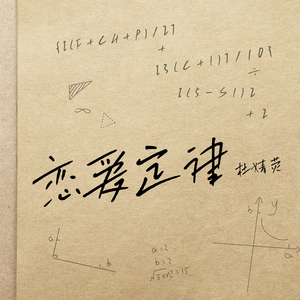 {[(F + CH + P) / 2]
+
[3(C + 1)] / 10}
÷
[(5 - SI)] 2
+ 2
恋爱定律 杜婧荧
a
b
a=2
b=2
b
y
a